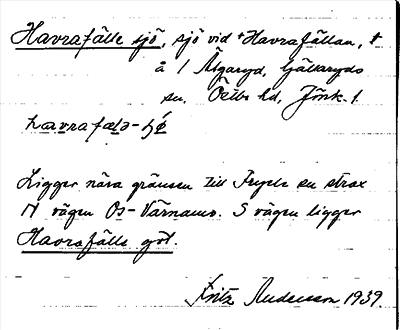 Havrafälle sjö, sjö vid +Havrafällan, +
å 1 Älgaryd, Gällaryds
sn. Östbo hd, Jönk. l.
havrafælə-ʂǿ
Ligger nära gränsen till Fryele sn strax
N vägen Os-Värnamo. S vägen ligger
Havrafälls göl.
Fritz Andersson 1939.